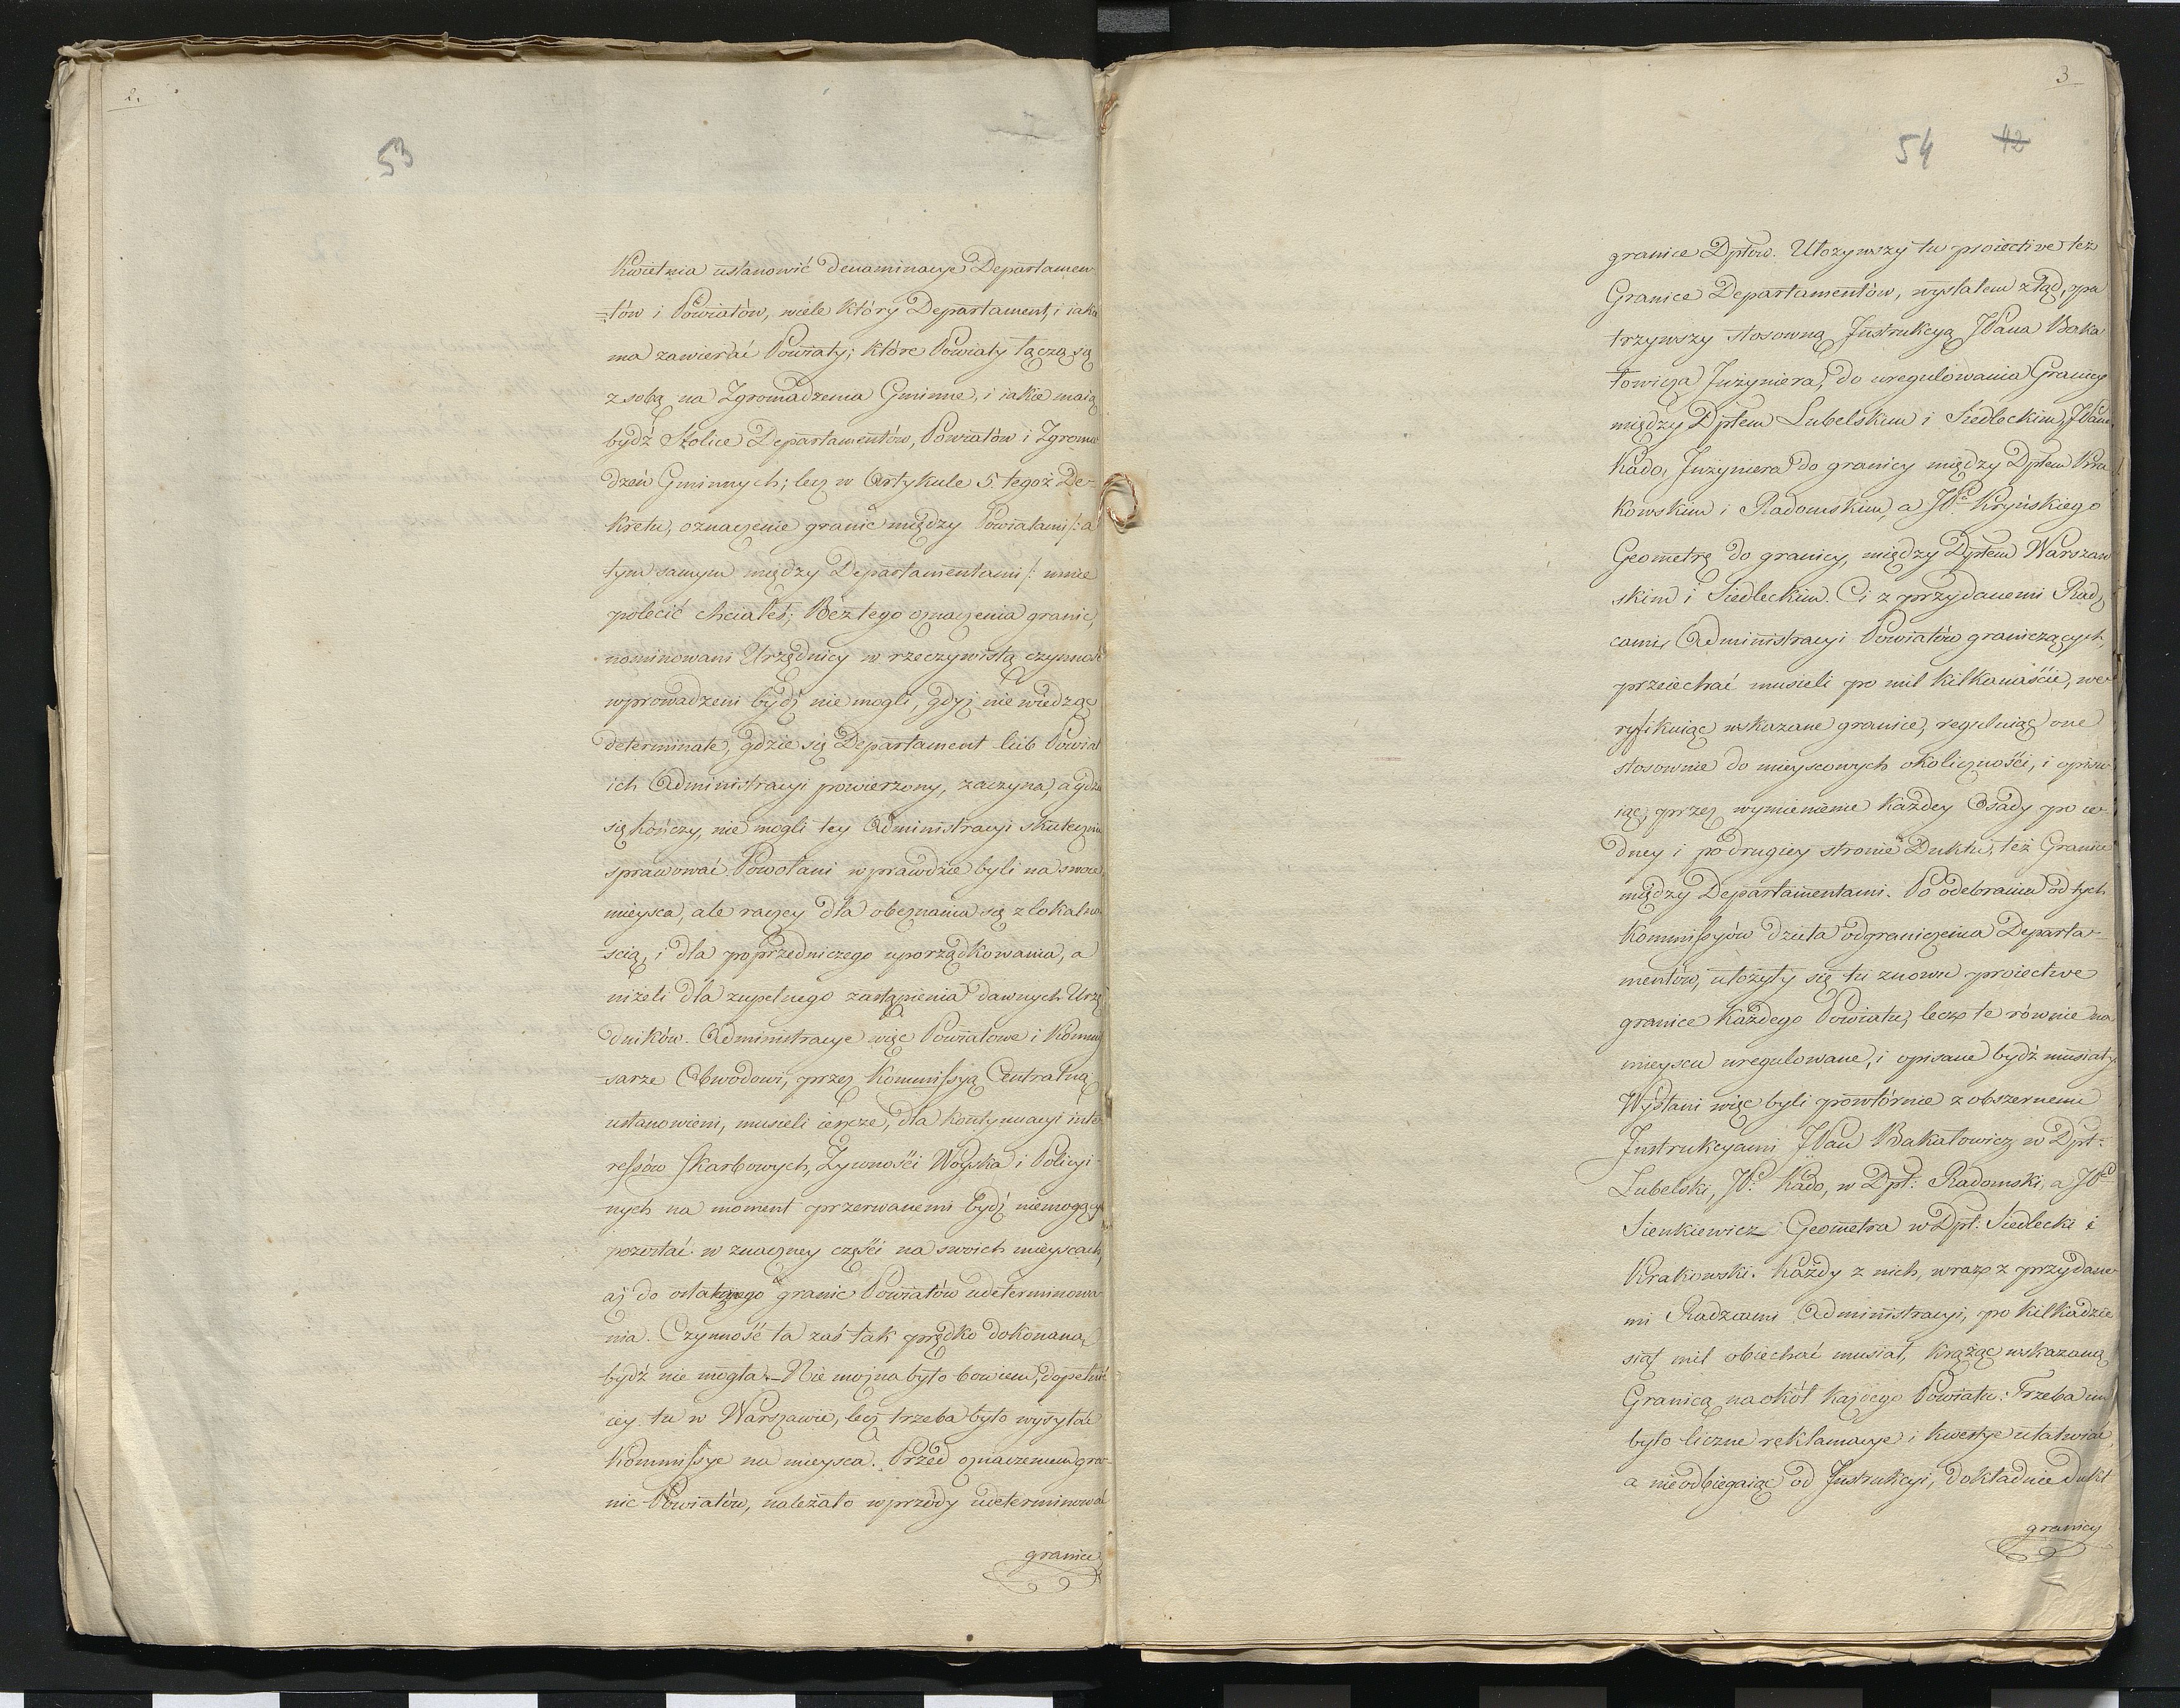 2.
53
Kwietnia ustanowić denominacye Departamen
=tów i Powiatów, wiele który Departament, i iakie
ma zawierać Powiaty; które Powiaty łączą się
z sobą na Zgromadzenia Gminne, i iakie maią
bydź Stolice Departamentów, Powiatów i Zgroma
dzeń Gminnych; lecz w Artykule 5 tegoż De-
kretu, oznaczenie granic między Powiatami /: a
tym samym między Departamentami :/ mnie
polecić chciałeś; Bez tego oznaczenia granic,
nominowani Urzędnicy w rzeczywistą czynność
wprowadzeni bydź nie mogli, gdyż nie wiedząc
determinate, gdzie się Departament lub Powiat
ich Administracyi powierzony, zaczyna, a gdzie
się kończy, nie mogli tey Administracyi skutecznie
sprawować. Powołani wprawdzie byli na swoie
mieysca, ale raczey dla obeznania się z lokalno
=ścią, i dla poprzedniczego uporządkowania, a
niżeli dla zupełnego zastąpienia dawnych Urzę
dników. Administracye więc Powiatowe i Kommis
=sarze Obwodowi, przez Kommissyą Centralną
ustanowieni, musieli ieszcze, dla kontynuacyi inte-
ressów Skarbowych, Żywności Woyska i Policyi-
nych na moment przerwanemi bydź niemogących
pozostać w znaczney części na swoich mieyscach,
aż do ostatecznego granic Powiatów udeterminowa
nia. Czynność ta zaś tak prędko dokonaną
bydź nie mogła. – Nie można było bowiem, dopełnić
iey tu w Warszawie, lecz trzeba było wysyłać
Kommissye na mieysca. Przed oznaczeniem gra-
nic Powiatów, należało wprzódy udeterminować
granice
3
54 12
granice Dptów. Ułożywszy tu proiective też
Granice Departamentów, wysłałem ztąd, opa
trzywszy stosowną Instrukcyą JPana Baka
łowicza Inżyniera, do uregulowania Granicy
między Dptem Lubelskim i Siedleckim, JPana
Kado, Inżyniera do granicy między Dptem Kra
kowskim i Radomskim, a JPa Kryńskiego
Geometrę do granicy, między Dptem Warszaw
skim i Siedleckim. Ci z przydanemi Rad,
cami, Administracyi Powiatów graniczących,
przeiechać musieli po mil kilkanaście, we-
ryfikuiąc wskazane granice, reguluiąc one
stosownie do mieyscowych okoliczności, i opisu
iąc, przez wymienienie każdey Osady po ie-
dney i po drugiey stronie Duktu, też Granice
między Departamentami. Po odebraniu od tych
Kommissyów dzieła odgraniczenia Departa-
mentów, ułożyły się tu znowu proiective
granice każdego Powiatu, lecz te równie na
mieyscu uregulowane, i opisane bydź musiały.
Wysłani więc byli powtórnie z obszernemi
Instrukcyami JPan Bakałowicz w Dpt:
Lubelski, JP. Kado, w Dpt: Radomski, a JP.
Sienkiewicz Geometra w Dpt: Siedlecki i
Krakowski. Każdy z nich, wraz z przydane
mi Radzcami Administracyi, po kilkadzie
siąt mil obiechać musiał, krążąc wskazaną
Granicą naokół każdego Powiatu: Trzeba im
było liczne reklamacye i kwestye ułatwiać,
a nieodbiegaiąc od Instrukcyi, dokładnie dukt
granicy